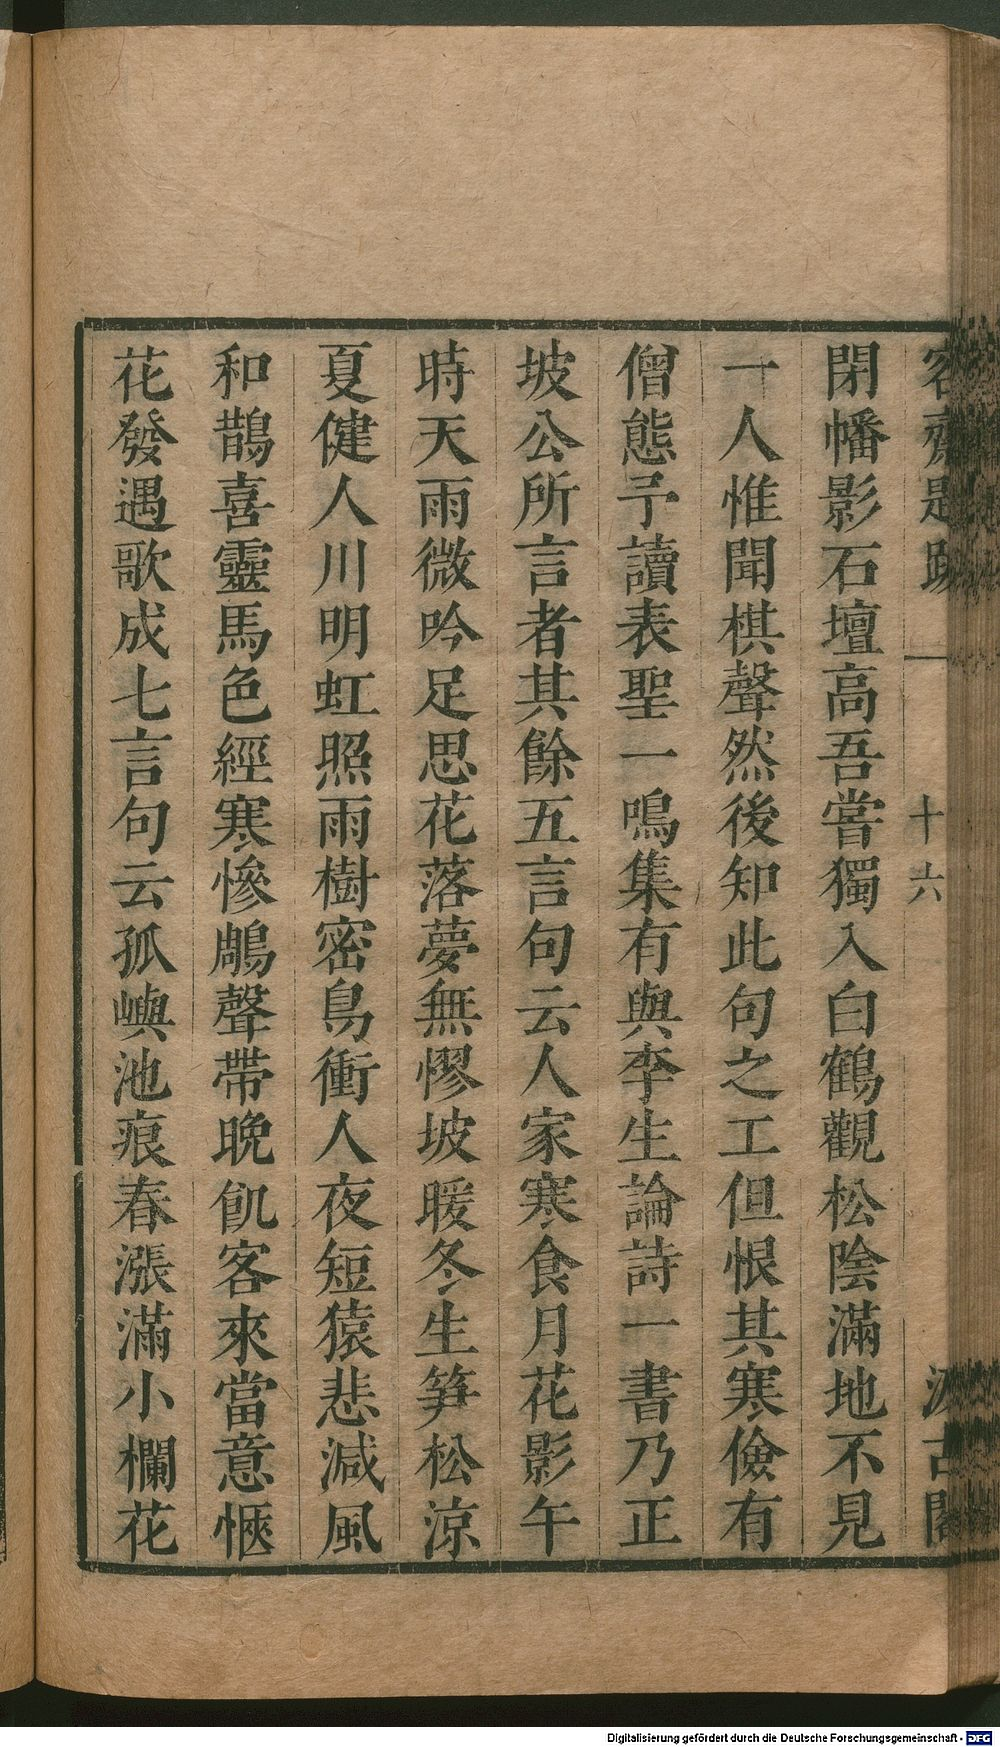 容齋題跋 一 十六 汲古閣
閉幡影石壇高吾嘗獨入白鶴觀松陰滿地不見
一人惟聞棋聲然後知此句之工但恨其寒儉有
僧態予讀表聖一鳴集有與李生論詩一書乃正
坡公所言者其餘五言句云人家寒食月花影午
時天雨微吟足思花落夢無憀坡暖冬生笋松涼
夏健人川明虹照雨樹密鳥衝人夜短猿悲減風
和鵲喜靈馬色經寒慘鵰聲帶晚飢客來當意愜
花發遇歌成七言句云孤嶼池痕春漲滿小欄花
Digitalisierung gefördert durch die Deutsche Forschungsgemeinschaft - DFG